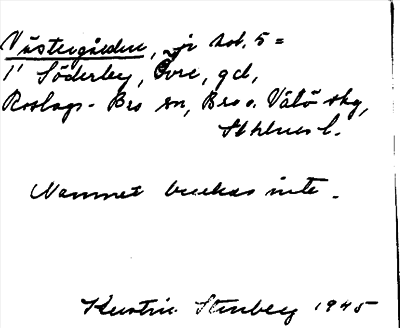 Västergården, ji sol. 5 =
1' Söderby, Övre, gd,
Roslags-Bro sn, Bro o. Vätö skg,
Sthlms l.
Namnet brukas inte.
Kerstin Stenberg 1945